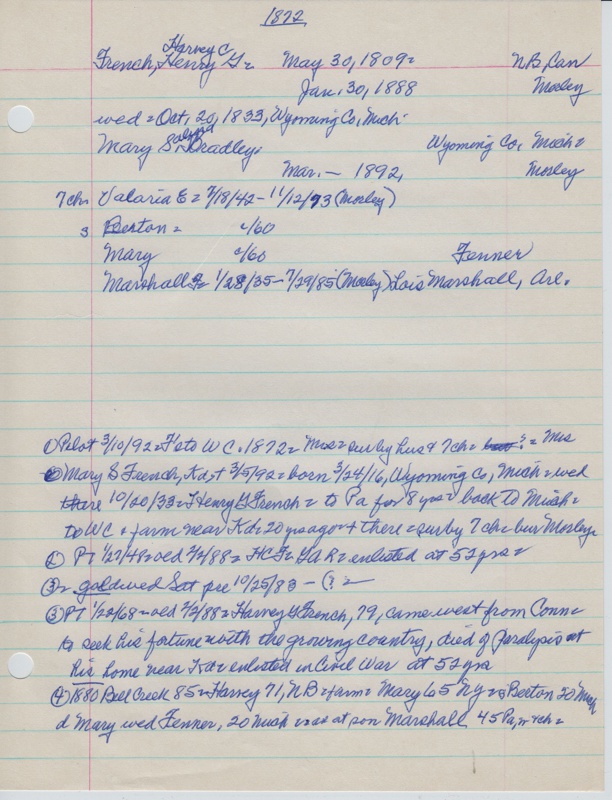 1872
Harvey C
French, Henry G= May 30, 1809= NB, Can
Jan. 30, 1888 Mosley
wed = Oct. 20, 1833, Wyoming Co, Mich.
Mary S. Bradley= Wyoming Co, Mich=
Mar. — 1892, Mosley
7 ch= Valaria E = 7/18/42 - 11/12/93 (Mosley)
3 Berton = c/60
Mary c/60 Fenner
Marshall F= 1/28/35 - 7/29/85 (Mosley) Lois Marshall, Arl.
① Pilot 3/10/92 = F to WC. 1872 = Mrs = sur by hus & 7 ch = ? = Mrs
Mary S French, Kd, + 3/5/92 = born 3/24/16, Wyoming Co, Mich = wed
there 10/20/33 = Henry G French = to Pa for 8 yrs = back to Mich =
to WC & farm near Kd = 20 yrs ago + there = sur by 7 ch = bur Mosley =
② PT 1/27/48 = oed 2/2/88 = HC F = GAR = enlisted at 52 yrs =
③ = gold wed Sat pre 10/25/83 - (? =
③ PT 1/28/68 = oed 2/2/88 = Harvey G French, 79, came west from Conn =
to seek his fortune with the growing country, died of paralysis at
his home near Kd = enlisted in Civil War at 52 yrs
④ 1880 Bell Creek 85 = Harvey 71, NB = farm = Mary 65 NY = s Berton 20 Mich
d Mary wed Fenner, 20 Mich = as at son Marshall 45 Pa, = 4 ch =